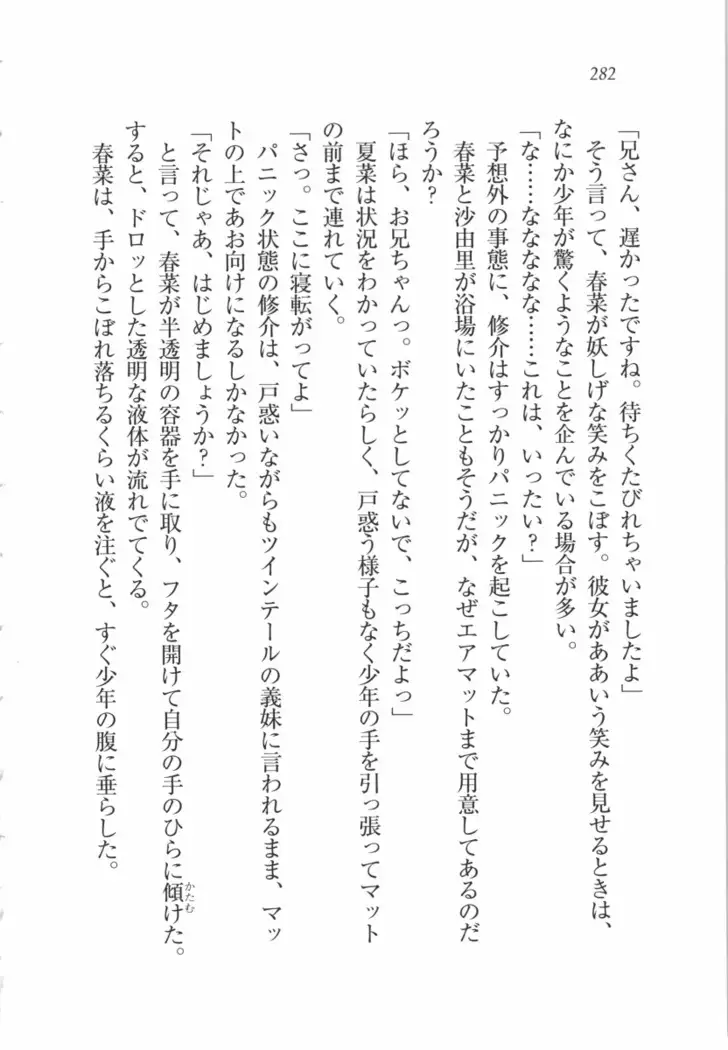 282
「兄さん、遅かったですね。待ちくたびれちゃいましたよ」
そう言って、春菜が妖しげな笑みをこぼす。彼女がああいう笑みを見せるときは、
なにか少年が驚くようなことを企んでいる場合が多い。
「な……なななな……これは、いったい？」
予想外の事態に、修介はすっかりパニックを起こしていた。
春菜と沙由里が浴場にいたこともそうだが、なぜエアマットまで用意してあるのだ
ろうか？
「ほら、お兄ちゃんっ。ボケッとしてないで、こっちだよっ」
夏菜は状況をわかっていたらしく、戸惑う様子もなく少年の手を引っ張ってマット
の前まで連れていく。
「さっ。ここに寝転がってよ」
パニック状態の修介は、戸惑いながらもツインテールの義妹に言われるまま、マッ
トの上であお向けになるしかなかった。
「それじゃあ、はじめましょうか？」
と言って、春菜が半透明の容器を手に取り、フタを開けて自分の手のひらに傾かたむけた。
すると、ドロッとした透明な液体が流れでてくる。
春菜は、手からこぼれ落ちるくらい液を注ぐと、すぐ少年の腹に垂らした。